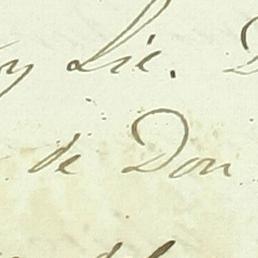 y Lic. D
de Don